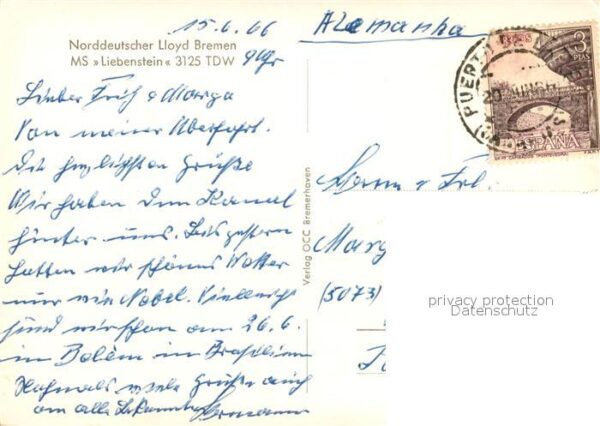 15.6.66
Alemanha
Norddeutscher Lloyd Bremen
MS »Liebenstein« 3125 TDW
9 Uhr
Lieber Fritz & Marga
Von meiner Überfahrt
die herzlichsten Grüße
Wir haben den Kanal
hinter uns. Bis gestern
hatten wir schönes Wetter
nur wie Nebel. Vielleicht
sind wir schon am 26.6.
in Belém in Brasilien
Nochmals viele Grüße auch
an alle Bekannte Hermann
Verlag OCC Bremerhaven
Herrn & Frl.
Marg
(5073)
PUERT
3
PTAS
ESPAÑA
privacy protection
Datenschutz